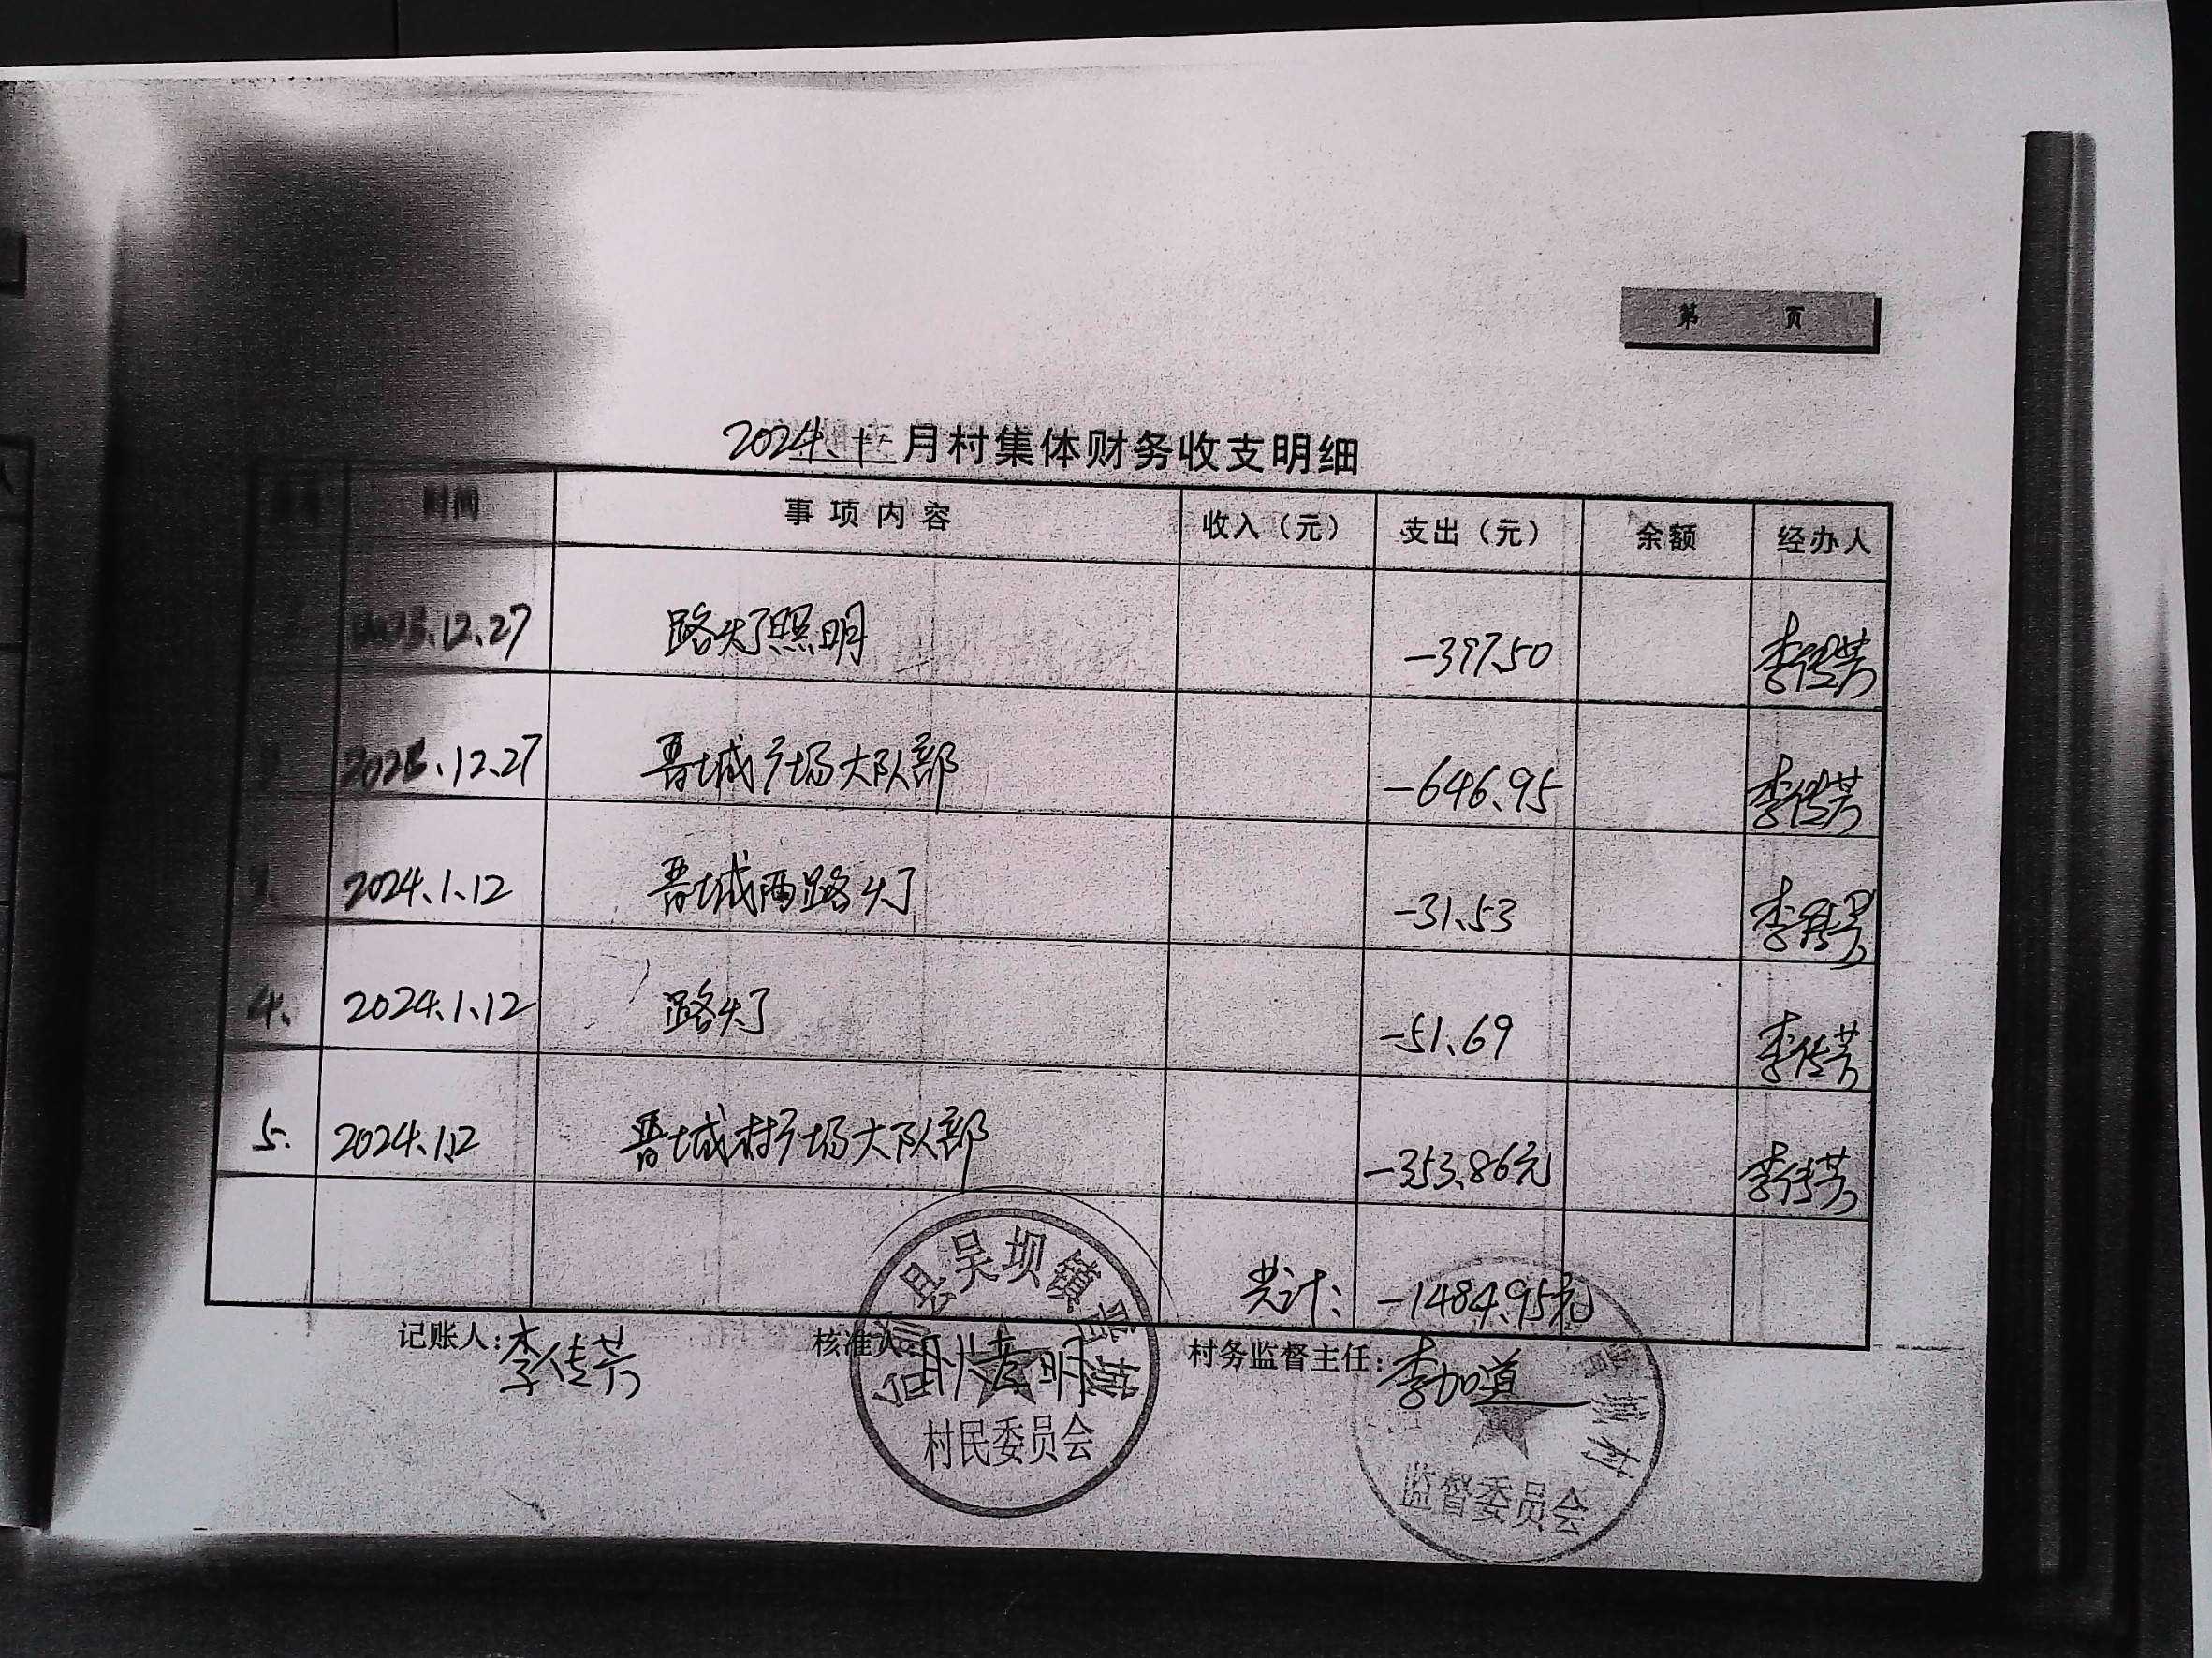 第 页
2024、十二月村集体财务收支明细
时间 事项内容 收入（元） 支出（元） 余额 经办人
2023.12.27 路灯照明 -397.50 李传芳
2023.12.27 晋城广场大队部 -646.95 李传芳
3. 2024.1.12 晋城西路灯 -31.53 李传芳
4. 2024.1.12 路灯 -51.69 李传芳
5. 2024.1.12 晋城村广场大队部 -353.86元 李传芳
共计： -1484.95元
记账人：李传芳 核准人： 村务监督主任：李加道
县吴坝镇晋城
村民委员会
晋城村
监督委员会